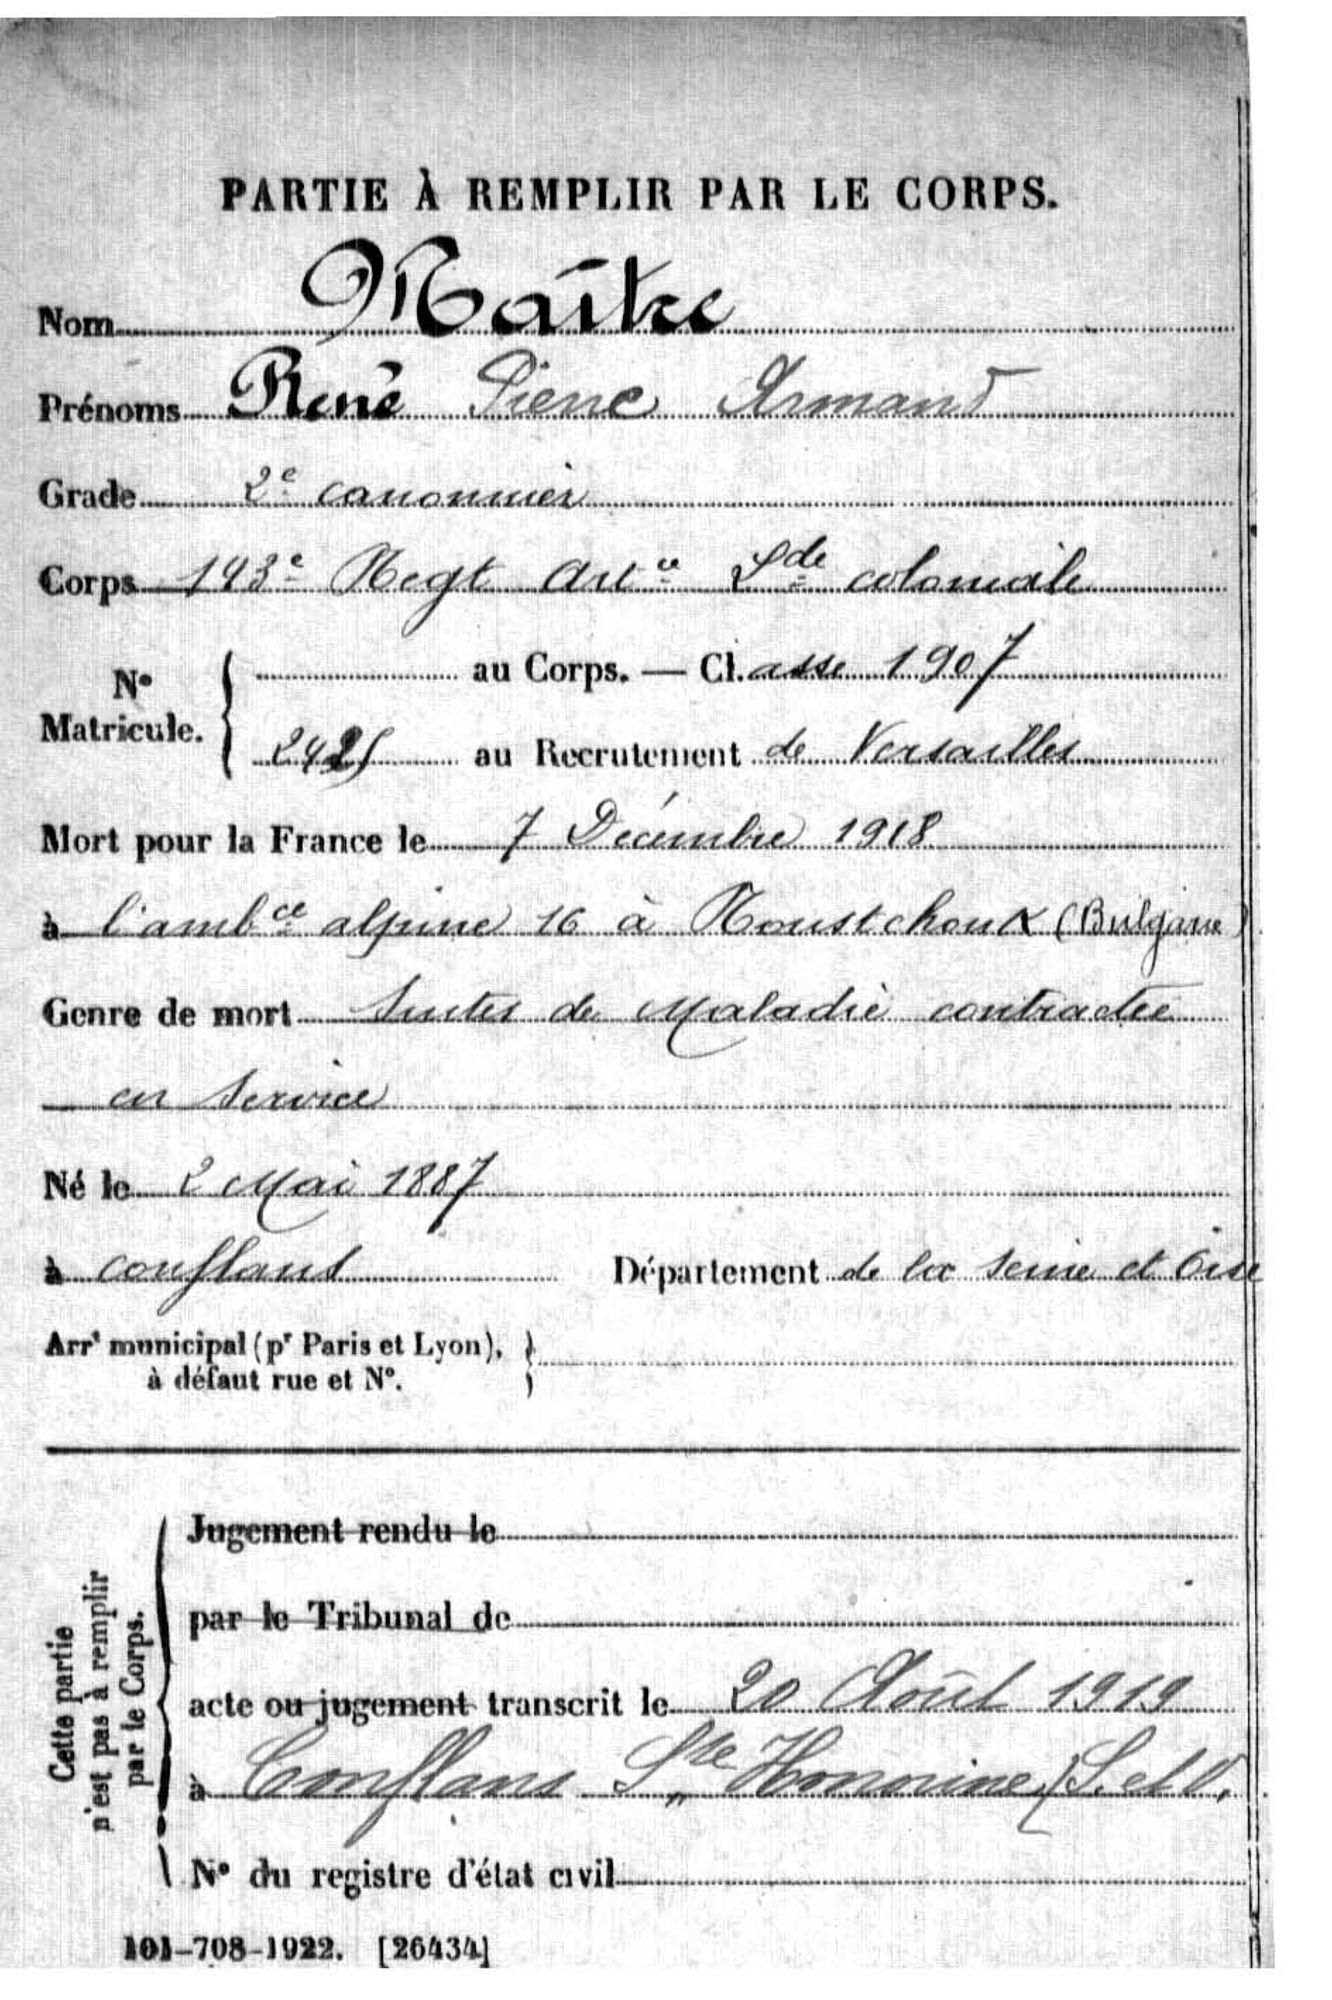 PARTIE À REMPLIR PAR LE CORPS.
Nom Maître
Prénoms René Pierre Armand
Grade 2e canonnier
Corps 143e Regt Artie Lde coloniale
No Matricule. { au Corps. — Classe 1907
au Recrutement de Versailles
Mort pour la France le 7 Décembre 1918
à l'ambce alpine 16 à Roustchouk (Bulgarie)
Genre de mort Suites de Maladie contractée
en service
Né le 2 Mai 1887
à Conflans Département de la Seine et Oise
Arrt municipal (pr Paris et Lyon), }
à défaut rue et No.
Cette partie n'est pas à remplir par le Corps.
Jugement rendu le
par le Tribunal de
acte ou jugement transcrit le 20 Août 1919
à Conflans Ste Honorine (S. et O.
No du registre d'état civil
101-708-1922. [26434]